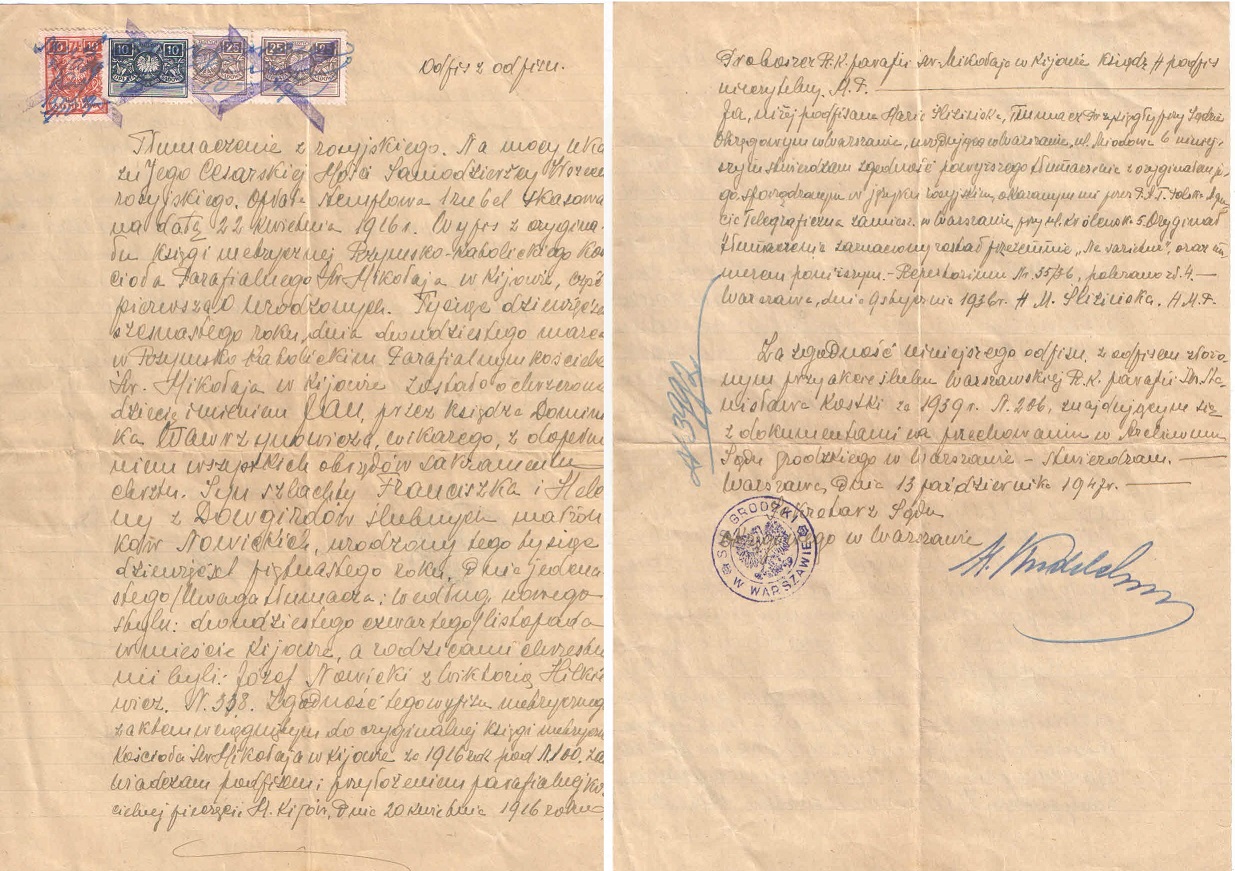 Odpis z odpisu.
Tłumaczenie z rosyjskiego. Na mocy uka
zu Jego Cesarskiej Mości Samodzierżcy Wszech
rosyjskiego. Opłata stemplowa 1 rubel skasowa
na datą 22 kwietnia 1916 r. Wypis z orygina
łu księgi metrycznej Rzymsko-Katolickiego Koś
cioła Parafialnego Św. Mikołaja w Kijowie, część
pierwsza, o urodzonych. Tysiąc dziewięćs
szesnastego roku, dnia dwudziestego marca
w Rzymsko-Katolickim Parafialnym Kościele
Św. Mikołaja w Kijowie zostało ochrzczone
dziecię imieniem Jan, przez księdza Domini
ka Wawrzynowicza, wikarego, z dopełnie
niem wszystkich obrzędów sakramentu
chrztu. Syn szlachty Franciszka i Hele
ny z Dowgirdów ślubnych małżon
ków Nowickich, urodzony tego tysiąc
dziewięćset piętnastego roku, dnia jedena
stego /Uwaga tłumacza: według nowego
stylu: dwudziestego czwartego/ listopada
w mieście Kijowie, a rodzicami chrzestny
mi byli: Józef Nowicki z Wiktorią Hilkie
wicz. N. 338. Zgodność tego wypisu metrycznego
z aktem wciągniętym do oryginalnej księgi metrycz
Kościoła Św. Mikołaja w Kijowie za 1916 rok pod N. 100. za
świadczam podpisem i przyłożeniem parafialnej koś
cielnej pieczęci. M. Kijów, dnia 20 kwietnia 1916 roku
Proboszcz R.K. parafii Św. Mikołaja w Kijowie Ksiądz /-/ podpis
nieczytelny. M.P.
Ja, niżej podpisana Maria Slizińska, Tłumacz Przysięgły przy Sądzie
Okręgowym w Warszawie, urzędująca w Warszawie, ul. Miodowa 6 niniej-
szym stwierdzam zgodność powyższego tłumaczenia z oryginałem je-
go sporządzonym w języku rosyjskim okazanym mi przez P.A.T. Polska Agen
cja Telegraficzna zamiesz. w Warszawie, przy ul. Królewskiej 5. Oryginał
tłumaczenia zaznaczony został przeze mnie „Ne varietur”, oraz nu
merem poniższym. - Repertorium Nr. 35/36, pobrano zł. 4. —
Warszawa, dnia 9 stycznia 1936 r. /-/ M. Slizińska. /-/ M.P.
Za zgodność niniejszego odpisu z odpisem złożo-
nym przy akcie ślubu Warszawskiej R.K. parafii Św. Sta-
nisława Kostki za 1939 r. N. 206, znajdującym się
z dokumentami na przechowaniu w Archiwum
Sądu Grodzkiego w Warszawie - stwierdzam. —
Warszawa, dnia 13 października 1947 r. —
Sekretarz Sądu
w Warszawie
SĄD GRODZKI W WARSZAWIE